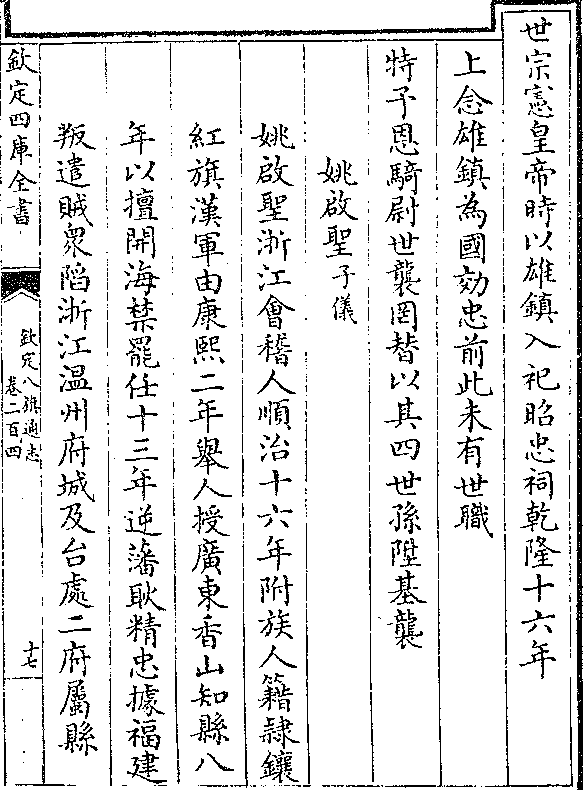 世宗憲皇帝時以雄鎮入祀昭忠祠乾隆十六年
上念雄鎮為國効忠前此未有世職
特予恩騎尉世襲罔替以其四世孫陞基襲
姚啟聖子儀
姚啟聖浙江會稽人順治十六年附族人籍隷鑲
紅旗漢軍由康熙二年舉人授廣東香山知縣八
年以擅開海禁罷任十三年逆藩耿精忠據福建
叛遣賊衆陷浙江温州府城及台處二府屬縣
欽定四庫全書
欽定八旗通志
卷二百四
十七